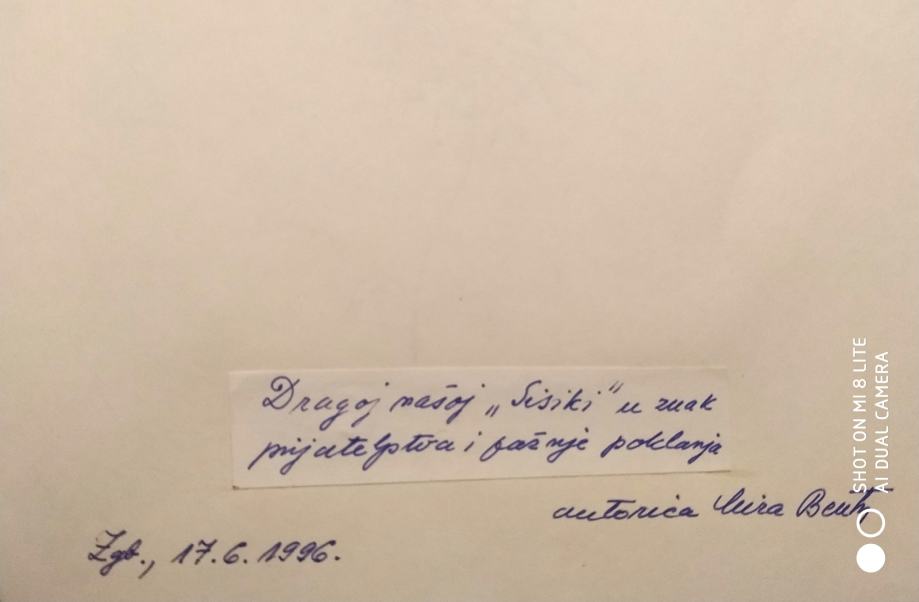 Dragoj našoj „Sisiki“ u znak
prijateljstva i pažnje poklanja
autorica Mira
Zgb., 17.6.1996.
SHOT ON MI 8 LITE
AI DUAL CAMERA